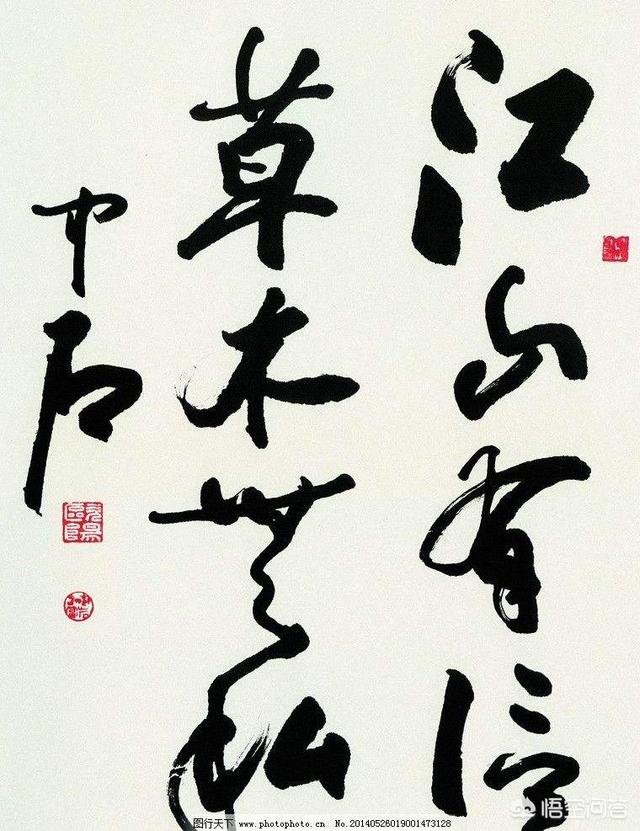 江山有信
草木無私
中石
图行天下 www.photophoto.cn No.20140526019001473128
悟空问答